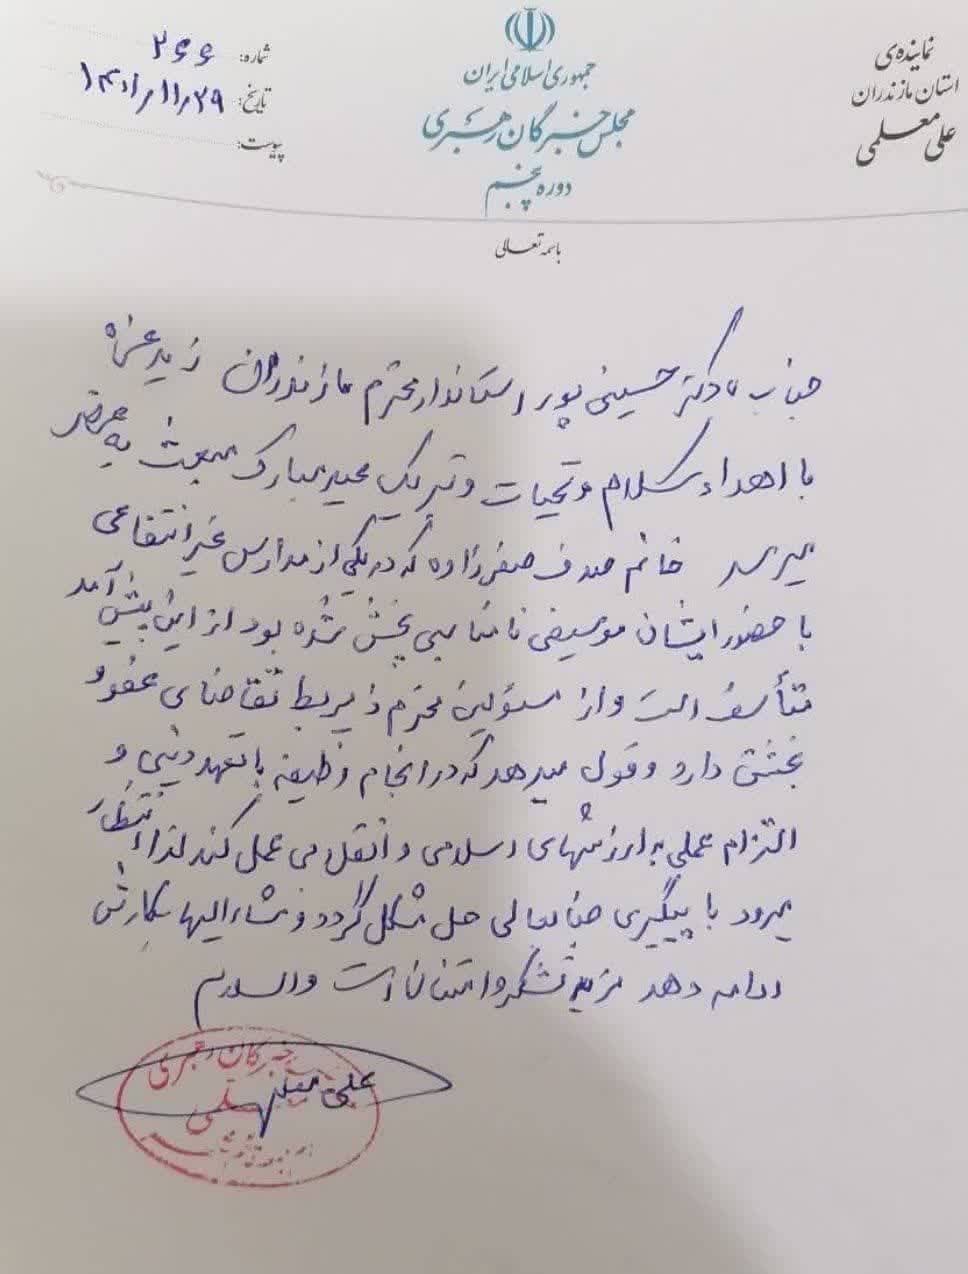 نماینده‌ی
استان مازندران
علی معلمی
جمهوری اسلامی ایران
مجلس خبرگان رهبری
دوره پنجم
شماره: ۲۶۶
تاریخ: ۱۴۰۱/۱۱/۲۹
پیوست:
باسمه تعالی
جناب دکتر حسینی پور استاندار محترم مازندران زید عزه
با اهداء سلام و تحیات و تبریک عید مبارک مبعث به عرض
میرسد خانم صدف صفرزاده که در یکی از مدارس غیرانتفاعی
با حضور ایشان موسیقی نامناسبی پخش شده بود از این پیش آمد
متأسف است و از مسئولین محترم ذیربط تقاضای عفو و
بخشش دارد و قول میدهد که در انجام وظیفه با تعهد دینی و
التزام عملی به ارزشهای اسلامی و انقلابی عمل کند لذا انتظار
میرود با پیگیری جنابعالی حل مشکل گردد و مشارالیها بکارش
ادامه دهد مزید تشکر و امتنان است والسلام
علی معلمی
خبرگان رهبری